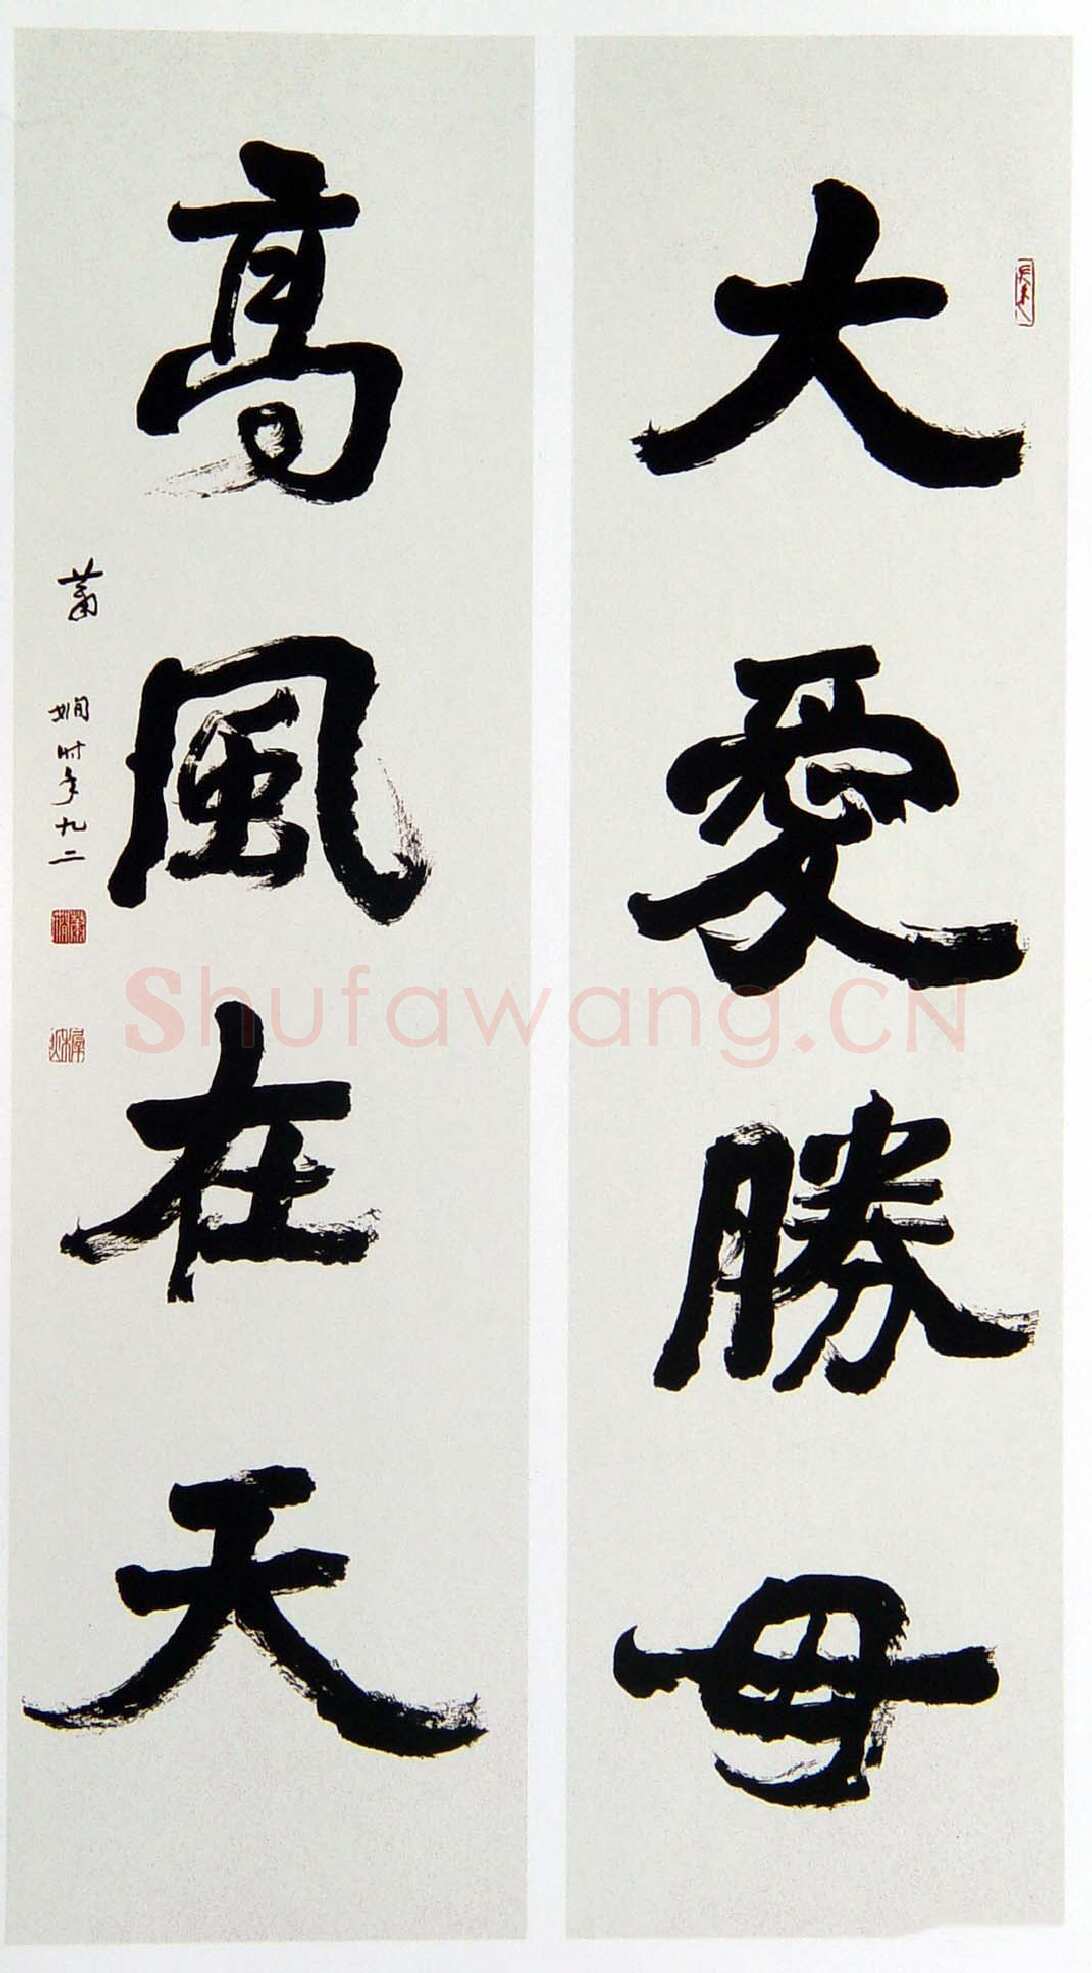 大愛勝母
高風在天
蕭嫻时年九二
Shufawang.CN